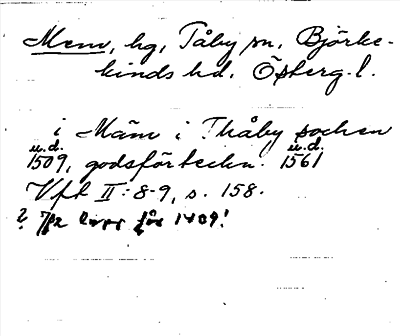 Mem, hg, Tåby sn, Björke-
kinds hd. Östergl.
i Mäm i Thåby sochen
u.d. u.d.
1509, godsförteckn. 1561
Vft II:8-9, s. 158.
? för 1409!